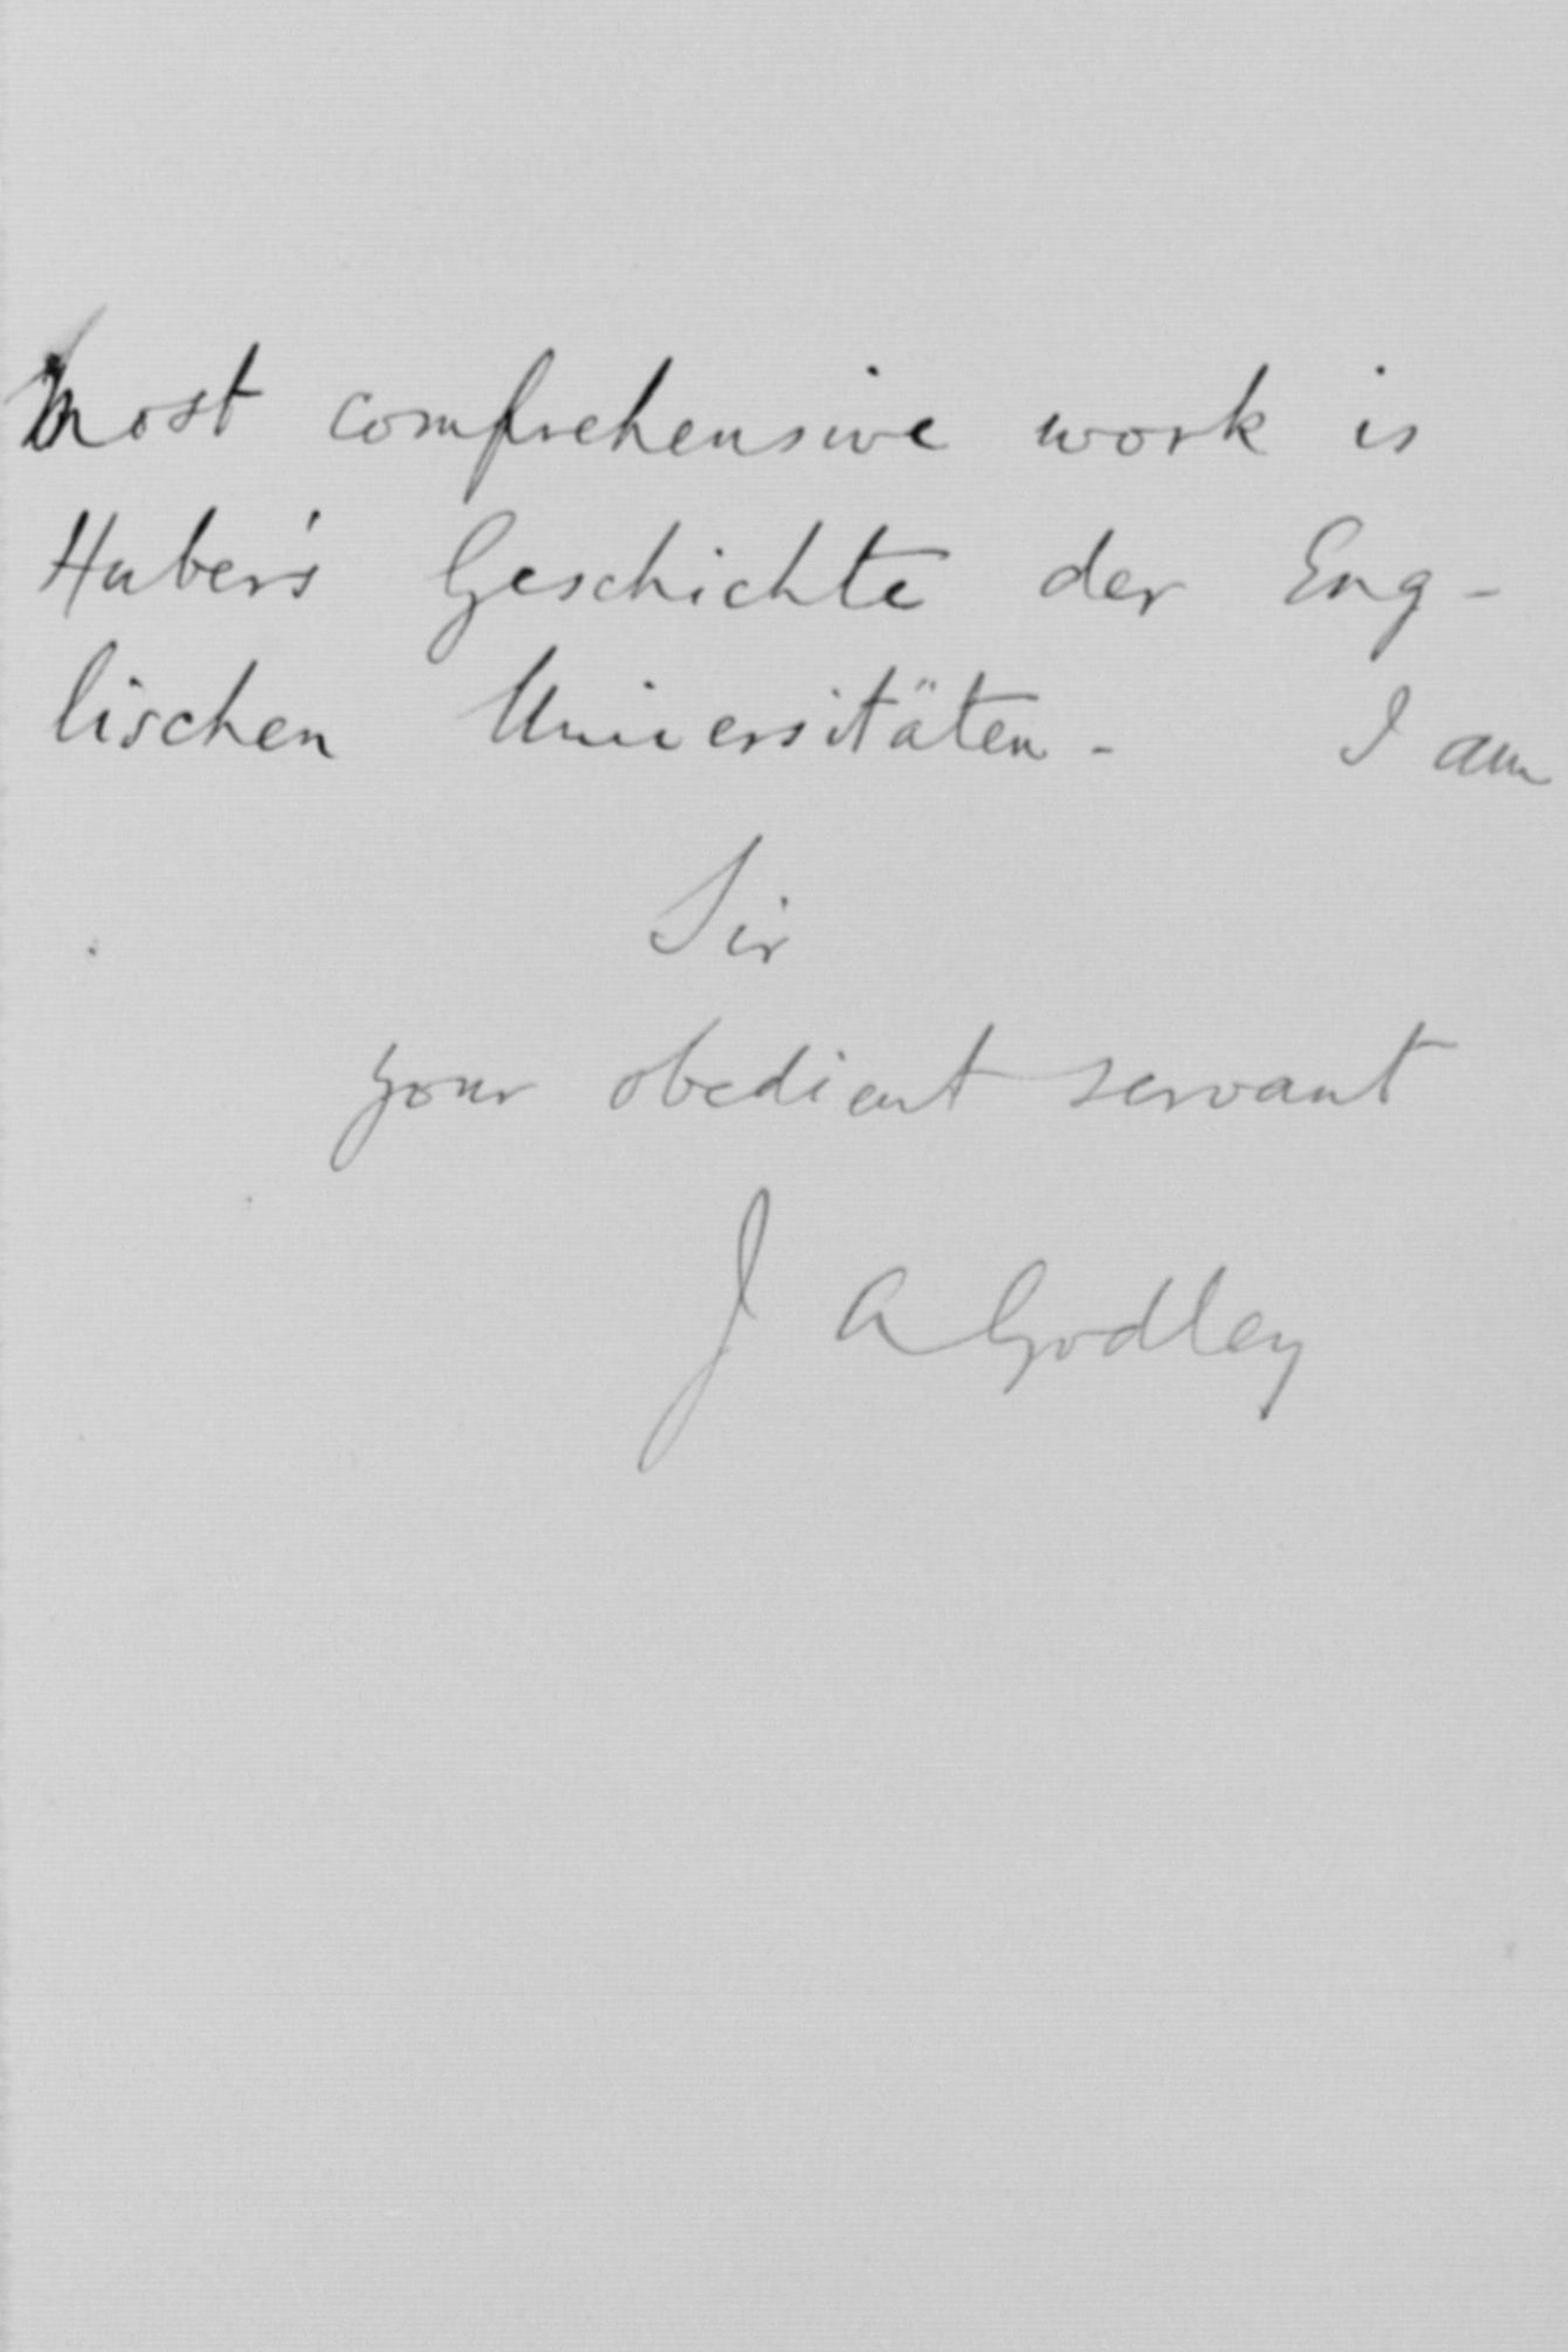 most comprehensive work is
Huber's Geschichte der Eng-
lischen Universitäten. I am
Sir
your obedient servant
J A Godley